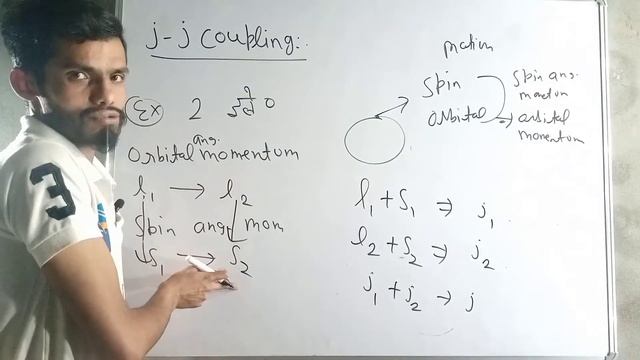 j-j coupling:.
Ex 2 इले०
ang.
Orbital momentum
l1 → l2
Spin ang mom
S1 → S2
motion
Spin
orbital →
Spin ang.
momentum
orbital
momentum
l1 + S1 ⇒ j1.
l2 + S2 ⇒ j2
j1 + j2 → j
3